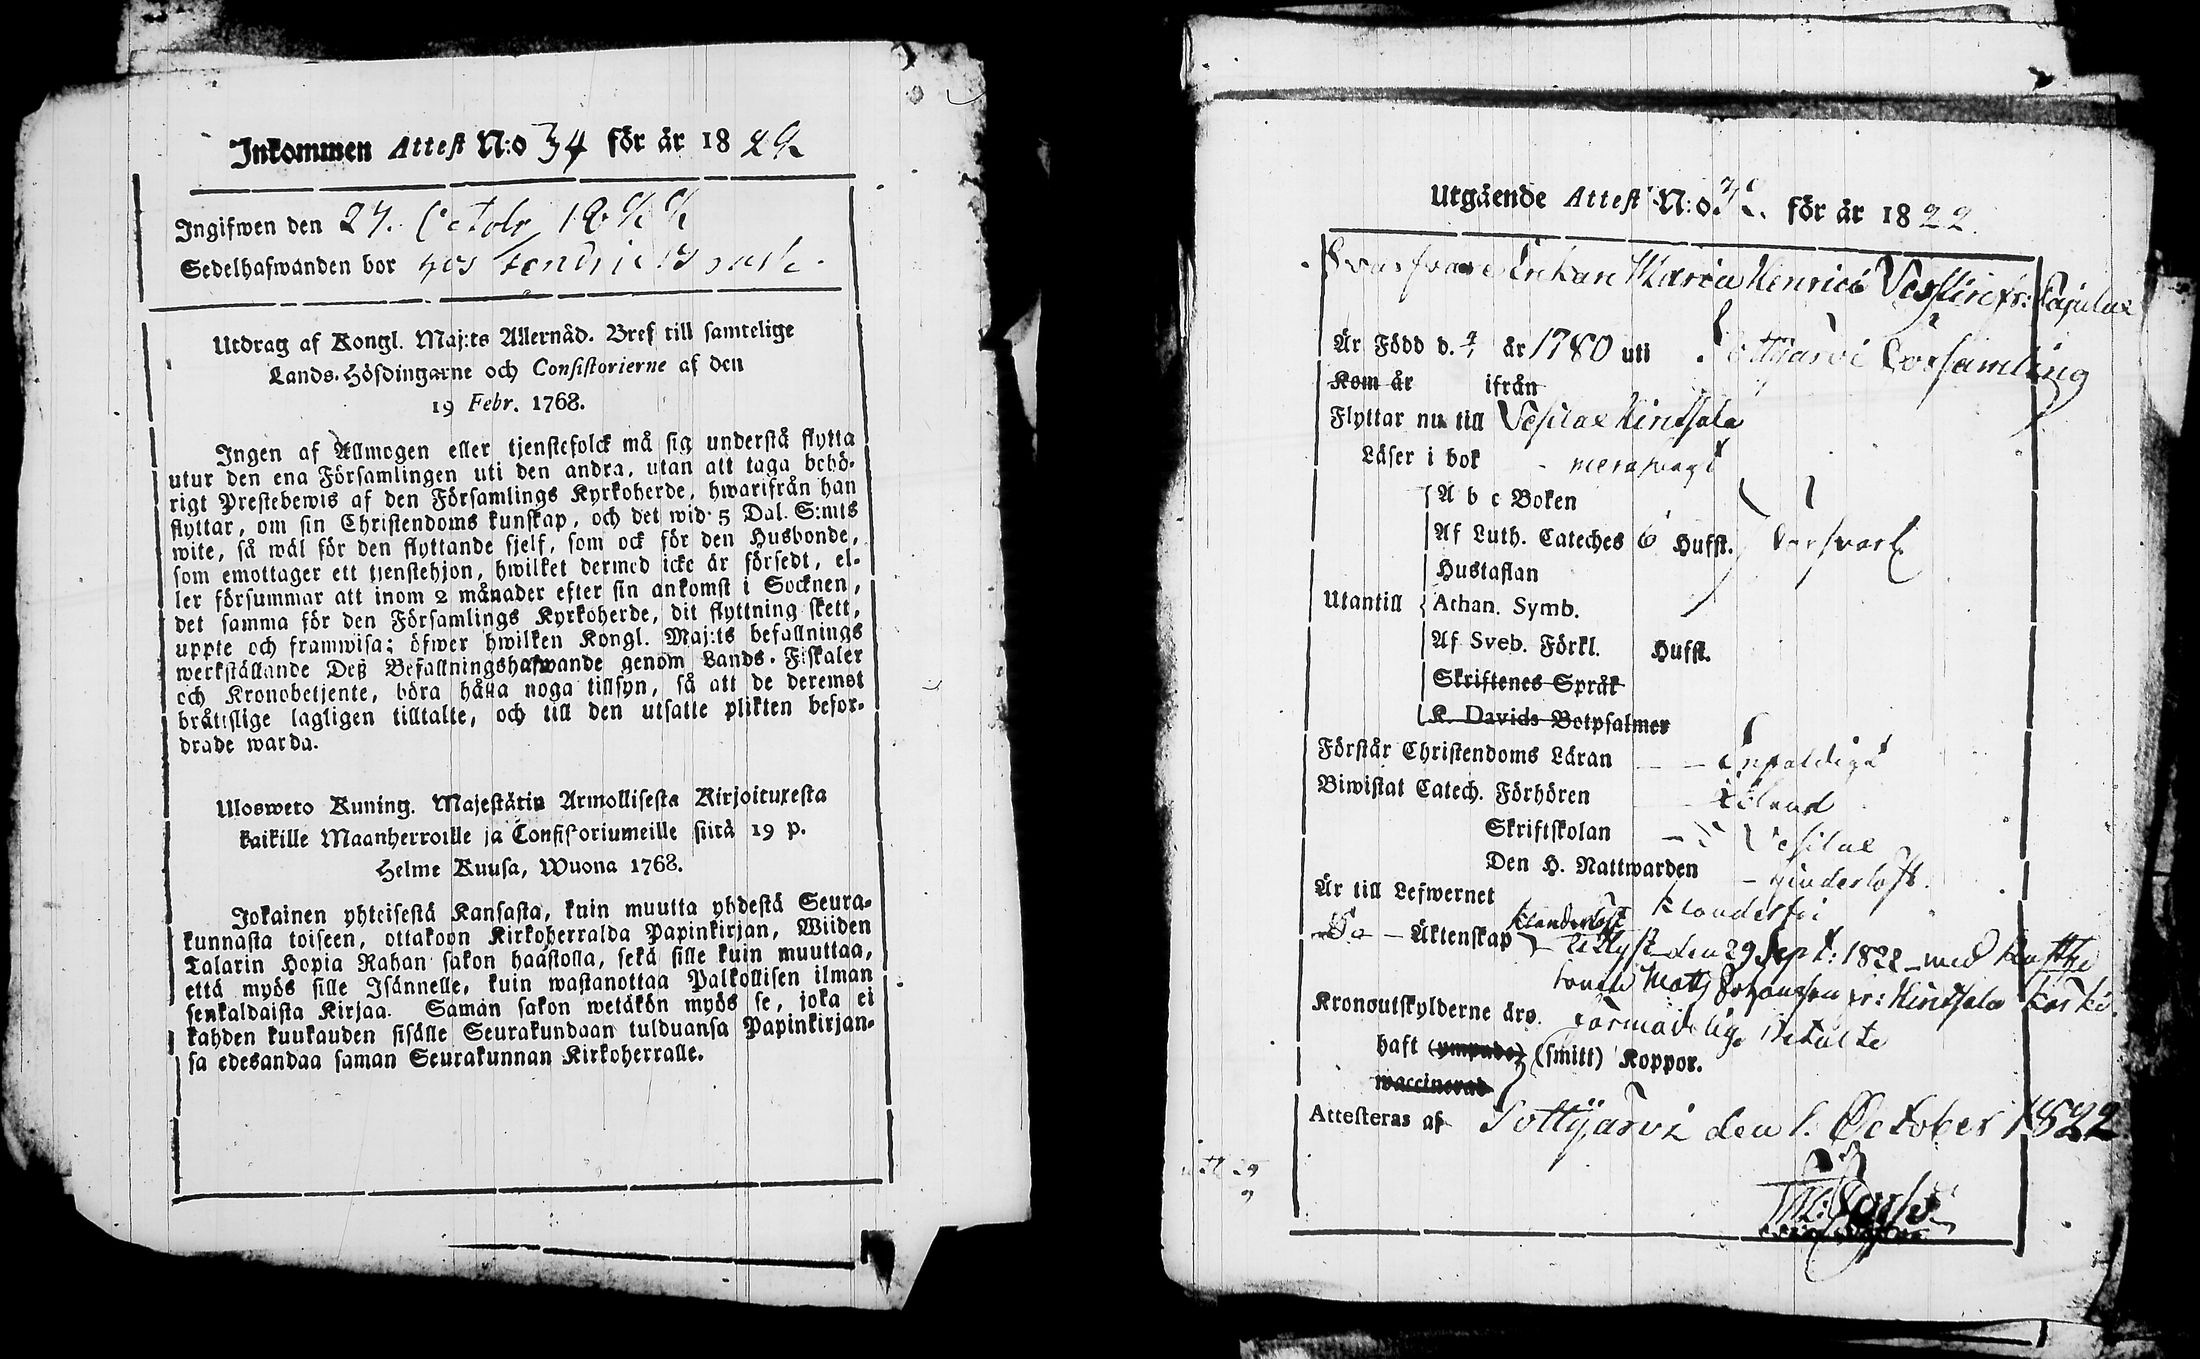 Inkommen Attest N:o 34 för år 1822
Ingifwen den 27. Octobr 1822
Sedelhafwanden bor hos
Utdrag af Kongl. Maj:ts Allernåd. Bref till samtelige
Lands-Höfdingarne och Consistorierne af den
19 Febr. 1768.
Ingen af Allmogen eller tjenstefolck må sig understå flytta
utur den ena Församlingen uti den andra, utan att taga behö-
rigt Prestebewis af den Församlings Kyrkoherde, hwarifrån han
flyttar, om sin Christendoms kunskap, och det wid 5 Dal. S:mts
wite, så wäl för den flyttande sjelf, som ock för den Husbonde,
som emottager ett tjenstehjon, hwilket dermed icke är försedt, el-
ler försummar att inom 2 månader efter sin ankomst i Socknen,
det samma för den Församlings Kyrkoherde, dit flyttning skett,
uppte och framwisa; öfwer hwilken Kongl. Maj:ts befallnings
werkställande Deß Befallningshafwande genom Lands-Fiskaler
och Kronobetjente, böra hålla noga tillsyn, så att de deremot
bråttslige lagligen tilltalte, och till den utsatte plikten befor-
drade warda.
Ulosweto Kuning. Majestätin Armollisesta Kirjoituxesta
kaikille Maanherroille ja Consistoriumeille siitä 19 p.
Helme Kuusa, Wuona 1768.
Jokainen yhteisestä Kansasta, kuin muutta yhdestä Seura-
kunnasta toiseen, ottakoon Kirkoherralda Papinkirjan, Wiiden
Talarin Hopia Rahan sakon haastolla, sekä sille kuin muuttaa,
että myös sille Isännelle, kuin wastanottaa Palkollisen ilman
senkaldaista Kirjaa. Saman sakon wetäkön myös se, joka ei
kahden kuukauden sisälle Seurakundaan tulduansa Papinkirjan-
sa edesandaa saman Seurakunnan Kirkoherralle.
Utgående Attest N:o för år 1822.
Enkan Maria Henrics fr:
Är Född d. år 1780 uti Pottijärvi Församling
Kom år ifrån
Flyttar nu till Vesilax Hindsala
Läser i bok
A b c Boken
Af Luth. Cateches 6 Hufst. försvarl
Hustaflan
Utantill Athan. Symb.
Af Sveb. Förkl. Hufst.
Skriftenes Språk
K. Davids Botpsalmer
Förstår Christendoms Läran - - Enfaldigt
Biwistat Catech. Förhören
Skriftskolan - Vesilax
Den H. Nattwarden - hinderlöst
Är till Lefwernet klanderfri
Do - Äktenskap Utlyst den 29 Sept: 1822 med
Matts Johansson fr: Hindsala
Kronoutskylderne äro. Förmodelige betalte
haft (ympade) (smitt) Koppor.
waccinerad
Attesteras af Pottijärvi den 1. October 1822